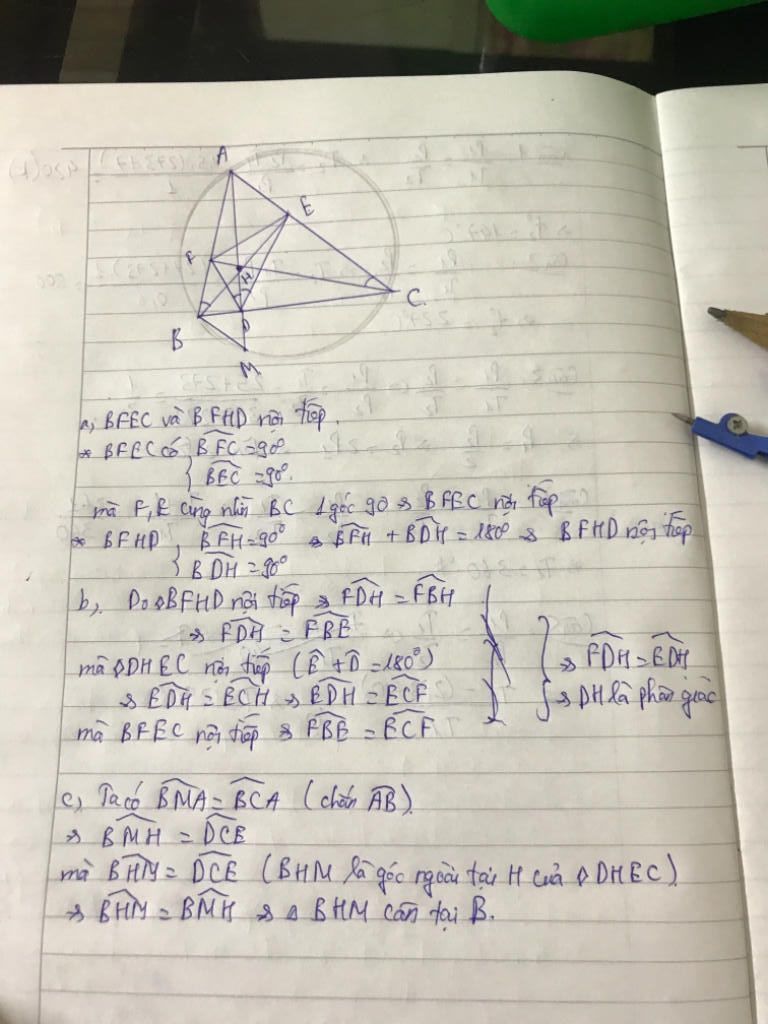 A
E
F
H
C
B
D
M
a, BFEC và BFHD nội tiếp.
* BFEC có { BFC = 90°
BEC = 90°.
mà F, E cùng nhìn BC 1 góc 90 => BFEC nội tiếp
* BFHD { BFH = 90° => BFH + BDH = 180° => BFHD nội tiếp
BDH = 90°
b, Do ◊BFHD nội tiếp => FDH = FBH
=> FDH = FBE
mà ◊DHEC nội tiếp (E + D = 180°)
=> EDH = ECH => EDH = ECF
mà BFEC nội tiếp => FBE = ECF
} => FDH = EDH
=> DH là phân giác
c, Ta có BMA = BCA (chắn AB).
=> BMH = DCE
mà BHM = DCE (BHM là góc ngoài tại H của ◊DHEC)
=> BHM = BMH => △ BHM cân tại B.